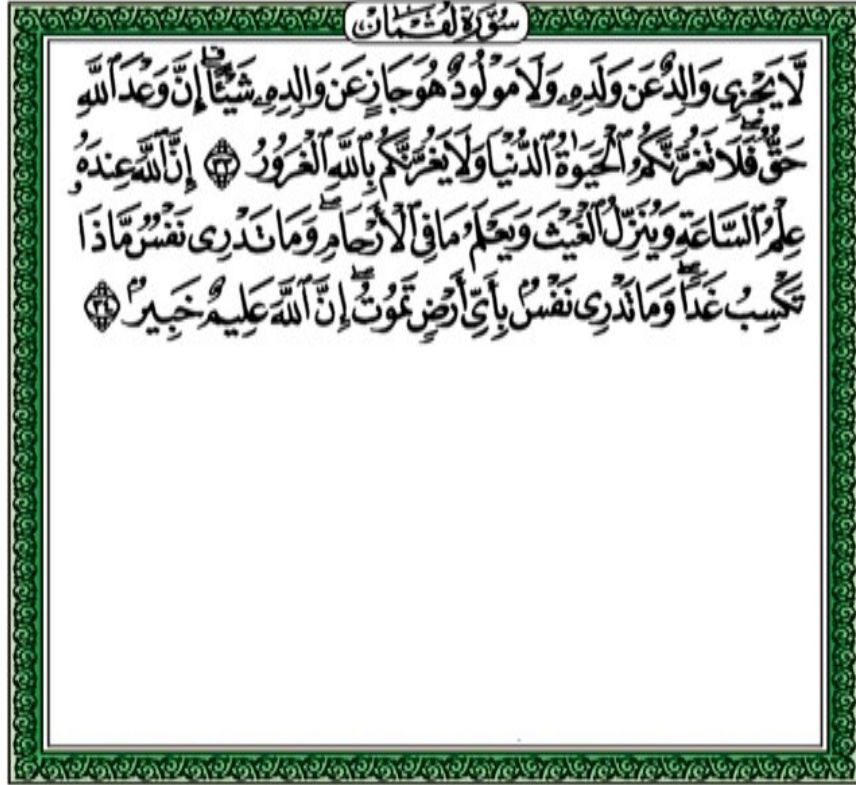 سُورَةُ لُقۡمَانَ
لَّا يَجۡزِي وَالِدٌ عَن وَلَدِهِۦ وَلَا مَوۡلُودٌ هُوَ جَازٍ عَن وَالِدِهِۦ شَيۡـًٔاۚ إِنَّ وَعۡدَ ٱللَّهِ
حَقّٞۖ فَلَا تَغُرَّنَّكُمُ ٱلۡحَيَوٰةُ ٱلدُّنۡيَا وَلَا يَغُرَّنَّكُم بِٱللَّهِ ٱلۡغَرُورُ ٣٣ إِنَّ ٱللَّهَ عِندَهُۥ
عِلۡمُ ٱلسَّاعَةِ وَيُنَزِّلُ ٱلۡغَيۡثَ وَيَعۡلَمُ مَا فِي ٱلۡأَرۡحَامِۖ وَمَا تَدۡرِي نَفۡسٞ مَّاذَا
تَكۡسِبُ غَدٗاۖ وَمَا تَدۡرِي نَفۡسُۢ بِأَيِّ أَرۡضٖ تَمُوتُۚ إِنَّ ٱللَّهَ عَلِيمٌ خَبِيرُۢ ٣٤